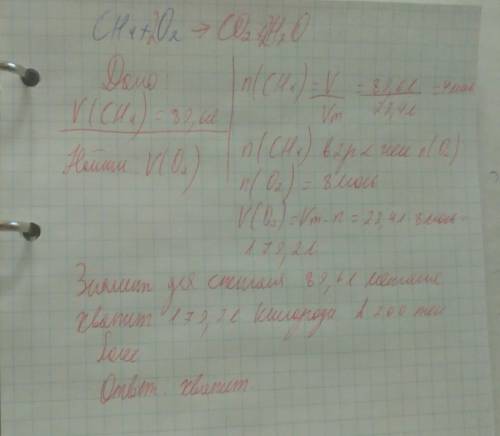 CH4+2O2 → CO2+2H2O
Дано
V(CH4) = 89,6л
Найти V(O2)
n(CH4) = V/Vm = 89,6л/22,4л = 4моль
n(CH4) в 2р < чем n(O2)
n(O2) = 8моль
V(O2) = Vm · n = 22,4л · 8моль =
179,2л
Значит для сжигания 89,6л метана
хватит 179,2л кислорода а 200 тем
более
Ответ: хватит.